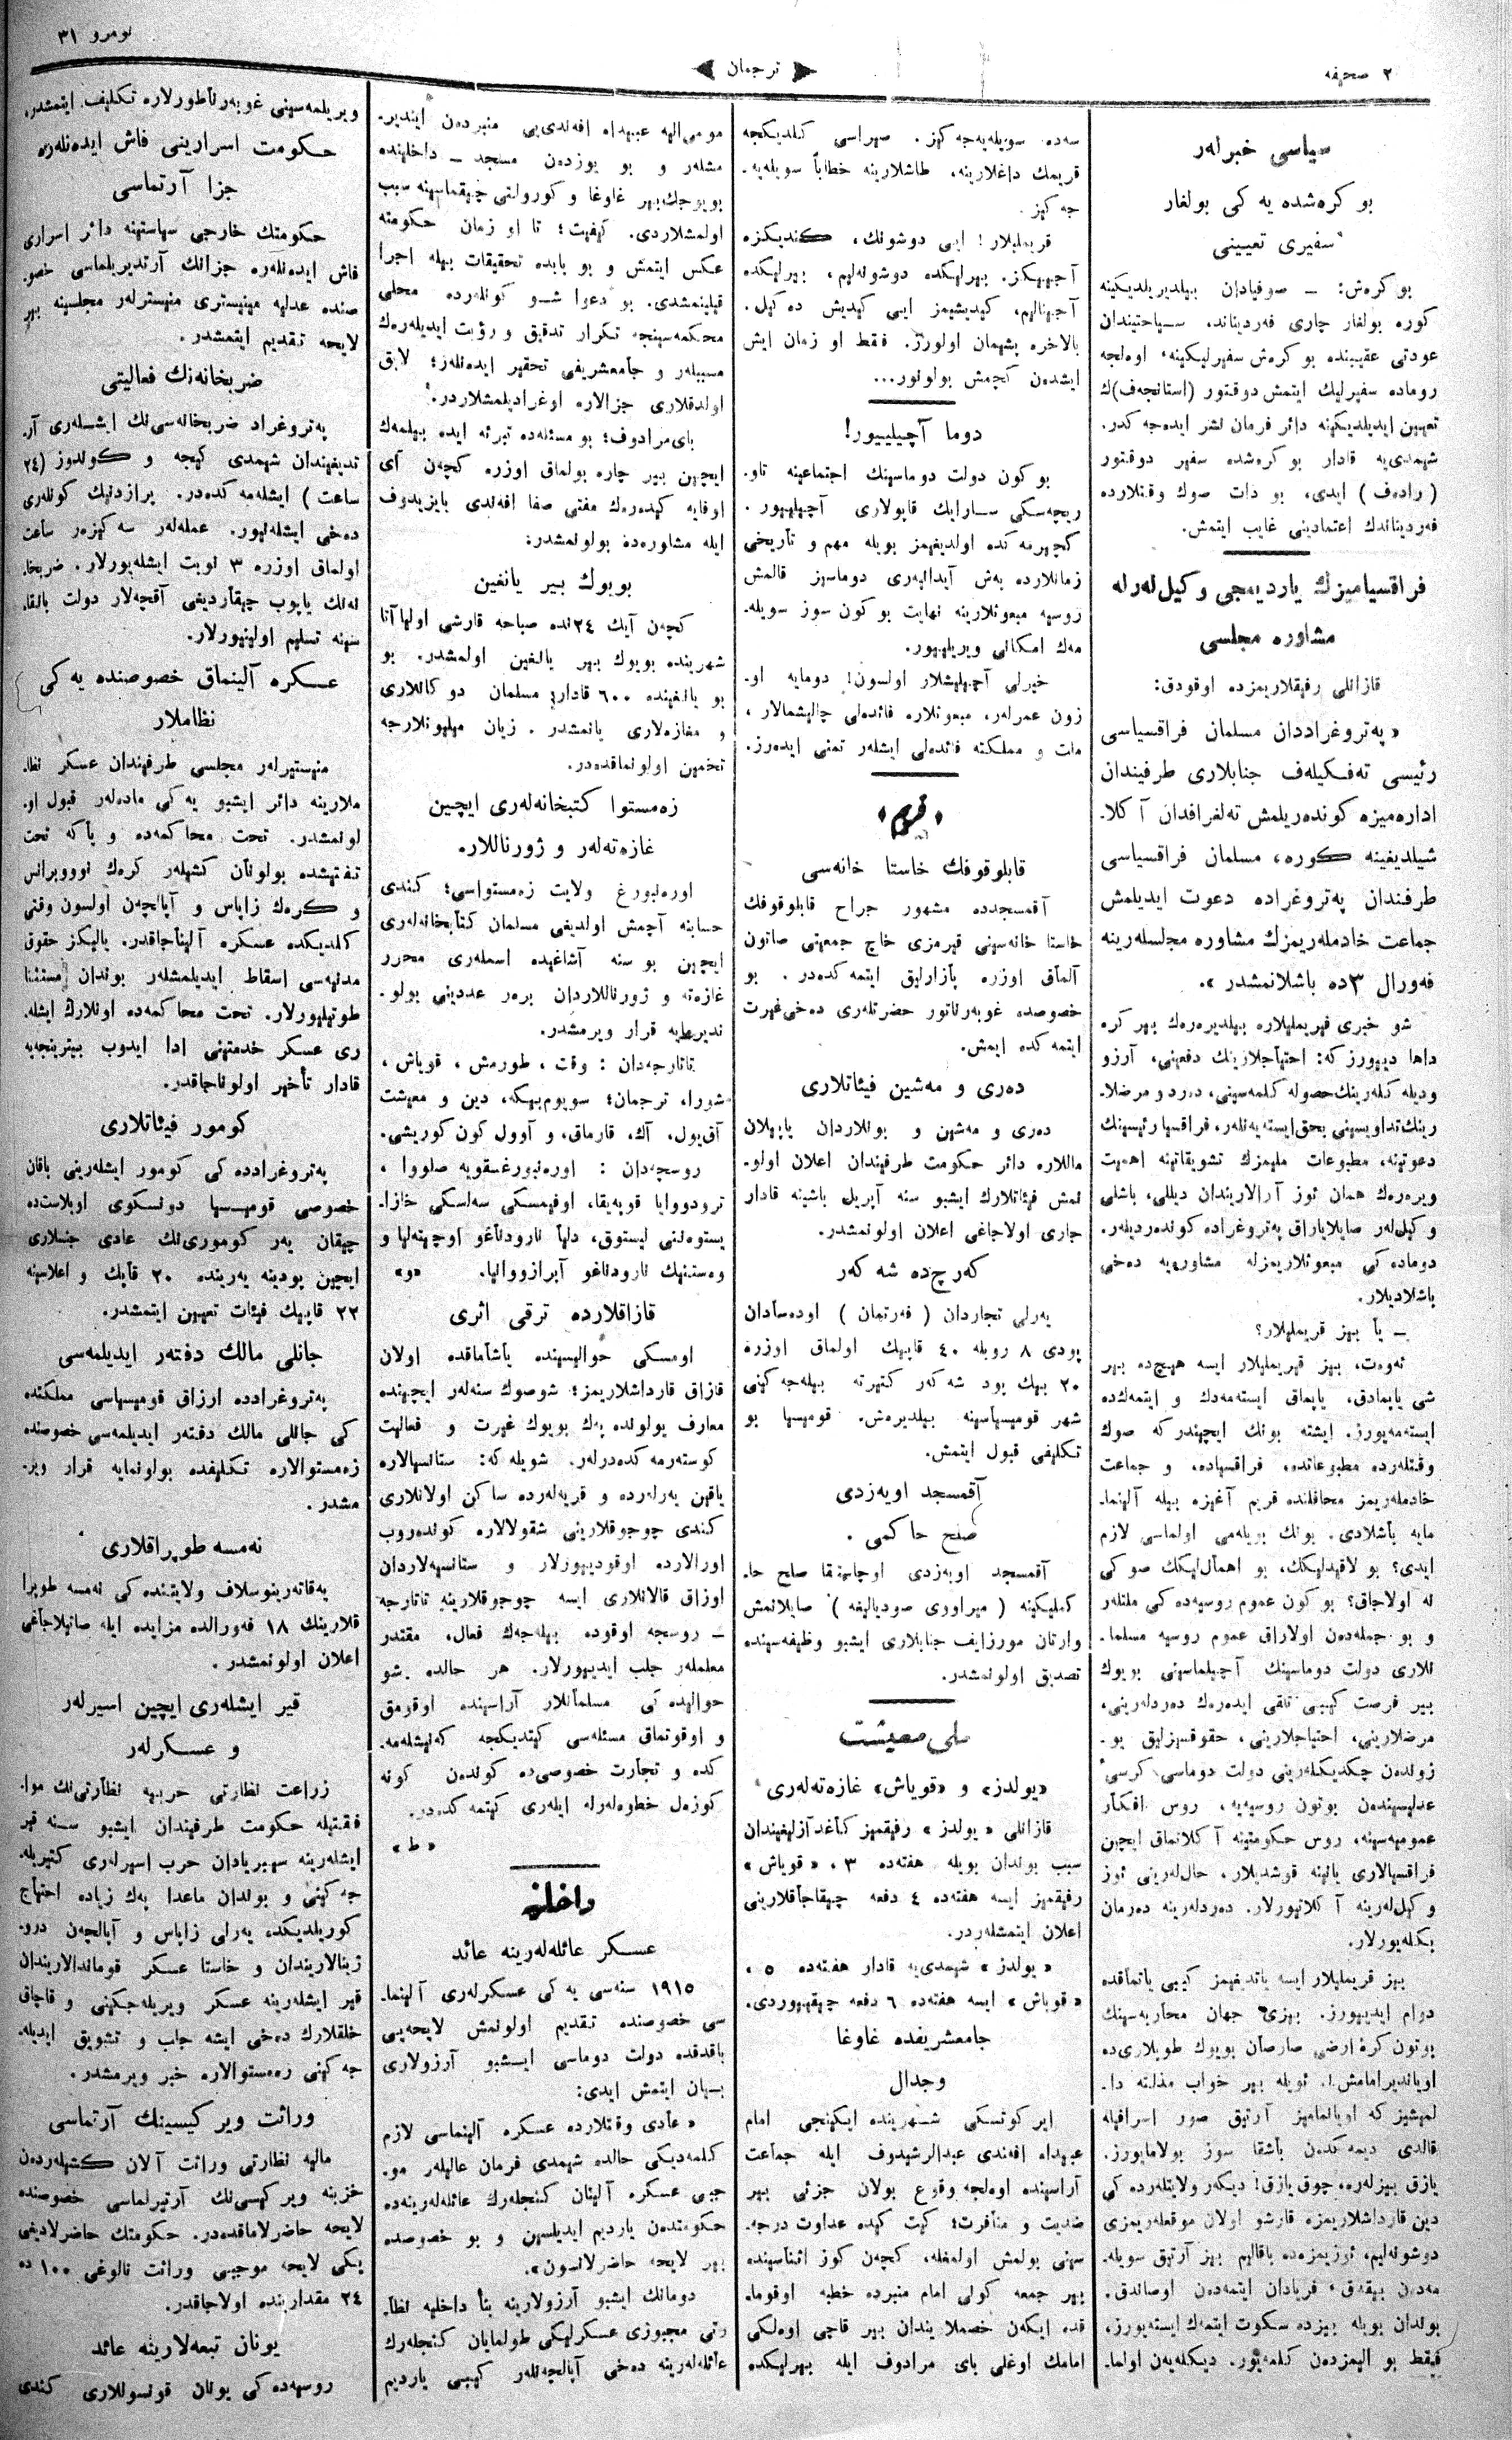 ٢ صحیفه
ترجمان
نومرو ٣١
سیاسی خبرلەر
بوکرەشدە یەکی بولغار
سفیری تعیینی
بوکرەش: ــ صوفیادان بیلدیریلدیکینە
کورە بولغار چاری فەردیناند، سیاحتیندان
عودتی عقیبندە بوکرەش سفیرلیکینە، اولجە
رومادە سفیرلیك ایتمش دوقتور (استانجەف)ك
تعیین ایدیلدیکینە دائر فرمان نشر ایدەجەکدر.
شیمدی‌یە قادار بوکرەشدە سفیر دوقتور
(رادەف) ایدی، بو ذات صوك وقتلاردە
فەردیناندك اعتمادینی غایب ایتمش.
فراقسیامیزك یاردیمجی وکیل‌لەرلە
مشاورە مجلسی
قازانلی رفیقلاریمزدە اوقودق:
«پەتروغراددان مسلمان فراقسیاسی
رئیسی تەفکیلەف جنابلاری طرفیندان
ادارەمیزە کوندەریلمش تەلغرافدان آکلا-
شیلدیغینە کورە، مسلمان فراقسیاسی
طرفندان پەتروغرادە دعوت ایدیلمش
جماعت خادملەریمزك مشاورە مجلسلەرینە
فەورال ٣دە باشلانمشدر».
شو خبری قریملیلارە بیلدیرەرەك بیر کرە
داها دییورزکە: احتیاجلارینك دفعینی، آرزو
ودیلەکلەرینك حصولە کلمەسینی، درد و مرضلا-
رینك تداویسینی بحق ایستەیەنلەر، فراقسیا رئیسینك
دعوتینە، مطبوعات ملیەمزك تشویقاتینە اهمیت
ویرەرەك همان ئوز آرالاریندان دیللی، باشلی
وکیل‌لەر صایلایاراق پەتروغرادە کوندەردیلەر.
دومادەکی مبعوثلاریمزلە مشاورەیە دەخی
باشلادیلار.
ــ یا بیز قریملیلار؟
ئەوەت، بیز قریملیلار ایسە هیچ‌دە بیر
شی یاپمادق، یاپماق ایستەمەدك و ایتمەك‌دە
ایستەمەیورز. ایشتە بونك ایچیندرکە صوك
وقتلەردە مطبوعاتدە، فراقسیادە، و جماعت
خادملەریمز محافلندە قریم آغیزە بیلە آلینما-
مایە باشلادی. بونك بویلەمی اولماسی لازم
ایدی؟ بو لاقیدلیکك، بو اهمال‌لیکك صوکی
نە اولاجاق؟ بوکون عموم روسیەدەکی ملتلەر
و بو جملەدەن اولاراق عموم روسیە مسلما-
نلاری دولت دوماسینك آچیلماسینی بویوك
بیر فرصت کیبی تلقی ایدەرەك دەردلەرینی،
مرضلارینی، احتیاجلارینی، حقوقسزلیق یو-
زوندەن چکدیکلەرینی دولت دوماسی کرسی
عدلیسیندەن بوتون روسیەیە، روس افکار
عمومیەسینە، روس حکومتینە آکلاتماق ایچین
فراقسیالاری یانینە قوشدیلار، حال‌لەرینی ئوز
وکیل‌لەرینە آکلاتیورلار. دەردلەرینە دەرمان
بکلەیورلار.
بیز قریملیلار ایسە یاتدیغیمز کیبی یاتماقدە
دوام ایدییورز. بیزی جهان محاربەسینك
بوتون کرۀ ارضی صارصان بویوك طوپلاری‌دە
اویاندیرامامش.. ئویلە بیر خواب مذلتە دا-
لمیشیز کە اویانمامیز آرتیق صور اسرافیلە
قالدی دیمەکدەن باشقا سوز بولامایورز.
یازق بیزلەرە، چوق یازق! دیکەر ولایتلەردەکی
دین قارداشلاریمزە قارشو اولان موقعلەریمزی
دوشونەلیم، ئوزیمزەدە باقالیم بیز آرتیق سویلە-
مەدەن بیقدق، فریادان ایتمەدەن اوصاندق.
بوندان بویلە بیزدە سکوت ایتمەك ایستەیورز،
فقط بو الیمزدەن کلمەیور. دیکلەیەن اولما-
سەدە سویلەیەجەکیز. صیراسی کلدیکجە
قریمك داغلارینە، طاشلارینە خطاباً سویلەیە-
جەکیز.
قریملیلار! ایی دوشونك، کندیکزە
آجییکز. بیرلیکدە دوشونەلیم، بیرلیکدە
آجینالیم، کیدیشیمز ایی کیدیش دەکیل.
بالاخرە پشیمان اولورز. فقط او زمان ایش
ایشدەن کچمش بولونور...
دوما آچیلییور!
بوکون دولت دوماسینك اجتماعینە تاو-
ریچەسکی سارایك قاپولاری آچیلییور.
کچیرمەکدە اولدیغیمز بویلە مهم و تأریخی
زمانلاردە بەش آیدانبەری دوماسیز قالمش
روسیە مبعوثلارینە نهایت بوکون سوز سویلە-
مەك امکانی ویریلییور.
خیرلی آچیلیشلار اولسون! دومایە او-
زون عمرلەر، مبعوثلارە فائدەلی چالیشمالار،
ملت و مملکتە فائدەلی ایشلەر تمنی ایدەرز.
«قریم»
قابلوقوفك خاستا خانەسی
آقمسجددە مشهور جراح قابلوقوفك
خاستا خانەسینی قیرمزی خاچ جمعیتی صاتون
آلماق اوزرە پازارلیق ایتمەکدەدر. بو
خصوصدە غوبەرناتور حضرتلەری دەخی غیرت
ایتمەکدە ایمش.
دەری و مەشین فیئاتلاری
دەری و مەشین و بونلاردان یاپیلان
ماللارە دائر حکومت طرفیندان اعلان اولو-
نمش فیئاتلارك ایشبو سنە آپریل باشینە قادار
جاری اولاجاغی اعلان اولونمشدر.
کەرچ‌دە شەکەر
یەرلی تجاردان (فەرتمان) اودەسادان
پودی ٨ روبلە ٤٠ قاپیك اولماق اوزرە
٢٠ بیك پود شەکەر کتیرتە بیلەجەکینی
شهر قومیسیاسینە بیلدیرمش. قومیسیا بو
تکلیفی قبول ایتمش.
آقمسجد اویەزدی
صلح حاکمی.
آقمسجد اویەزدی اوچاستقا صلح حا-
کملیکینە (میراووی صودیالیغە) صایلانمش
وارتان مورزایف جنابلاری ایشبو وظیفەسیندە
تصدیق اولونمشدر.
ملی معیشت
«یولدز» و «قویاش» غازەتەلەری
قازانلی «یولدز» رفیقمیز کاغد آزلیغیندان
سبب بوندان بویلە هفتەدە ٣، «قویاش»
رفیقمیز ایسە هفتەدە ٤ دفعە چیقاجاقلارینی
اعلان ایتمشلەردر.
«یولدز» شیمدی‌یە قادار هفتەدە ٥،
«قویاش» ایسە هفتەدە ٦ دفعە چیقییوردی.
جامعشریفدە غاوغا
وجدال
ایرکوتسکی شهریندە ایکینجی امام
عبیداه افەندی عبدالرشیدوف ایلە جماعت
آراسیندە اولجە وقوع بولان جزئی بیر
ضدیت و منافرت؛ کیت کیدە عداوت درجە-
سینی بولمش اولمغلە، کچەن کوز اثناسیندە
بیر جمعە کونی امام منبردە خطبە اوقوما-
قدە ایکەن خصملاریندان بیر قاچی اوەلکی
امامك اوغلی بای مرادوف ایلە بیرلیکدە
مومی‌الیە عبیداە افەندی‌یی منبردن ایندیر-
مشلەر و بو یوزدن مسجد ــ داخلیندە
بویوجك‌بیر غاوغا و کورولتی چیقماسینە سبب
اولمشلاردی. کیفیت؛ تا او زمان حکومتە
عکس ایتمش و بو بابدە تحقیقات بیلە اجرا
قیلینمشدی. بو دعوا شو کونلەردە محلی
محکمەسینجە تکرار تدقیق و رؤیت ایدیلەرەك
مسببلەر و جامعشریفی تحقیر ایدەنلەر؛ لایق
اولدقلاری جزالارە اوغرادیلمشلاردر.
بای‌مرادوف؛ بو مسئلەدە تبرئە ایدە بیلمەك
ایچین بیر چارە بولماق اوزرە کچەن آی
اوفایە کیدەرەك مفتی صفا افەندی بایزیدوف
ایلە مشاورەدە بولونمشدر.
بویوك بیر یانغین
کچەن آیك ٢٤ندە صباحە قارشی اولیاآتا
شهریندە بویوك بیر یانغین اولمشدر. بو
بو یانغیندە ٦٠٠ قادار مسلمان دوکانلاری
و مغازەلاری یانمشدر. زیان میلیونلارجە
تخمین اولونماقدەدر.
زەمستوا کتبخانەلەری ایچین
غازەتەلەر و ژورناللار.
اورەنبورغ ولایت زەمستواسی؛ کندی
حسابنە آچمش اولدیغی مسلمان کتابخانەلەری
ایچین بو سنە آشاغیدە اسملەری محرر
غازەتە و ژورناللاردان برەر عددینی بولو-
ندیرمایە قرار ویرمشدر.
تاتارجەدان: وقت، طورمش، قویاش،
شورا، ترجمان؛ سویوم‌بیکە، دین و معیشت
آق‌یول، آك، قارماق، و آوول کون کوریشی.
روسچەدان: اورەنبورغسقویە صلووا،
ترودووایا قوپەیقا، اوفیمسکی سەلسکی خازا-
یستوەننی لیستوق، دلیا نارودناغو اوچیتەلیا و
وەستنیك نارودناغو آبرازووانیا. «و»
قازاقلاردە ترقی اثری
اومسکی حوالیسیندە یاشاماقدە اولان
قازاق قارداشلاریمز؛ شوصوك سنەلەر ایچیندە
معارف یولوندە پەك بویوك غیرت و فعالیت
کوستەرمەکدەدرلەر. شویلەکە: ستانسیالارە
یاقین یەرلەردە و قریەلەردە ساکن اولانلاری
کندی چوجوقلارینی شقولالارە کوندەروب
اورالاردە اوقودییورلار و ستانسیەلاردان
اوزاق قالانلاری ایسە چوجوقلارینە تاتارجە
ــ روسجە اوقودە بیلەجەك فعال، مقتدر
معلملەر جلب ایدییورلار. هر حالدە شو
حوالیدەکی مسلمانلار آراسیندە اوقومق
و اوقوتماق مسئلەسی کیتدیکجە کەنیشلەمە-
کدە و تجارت خصوصی‌دە کوندەن کونە
کوزەل خطوەلەرلە ایلەری کیتمەکدەدر.
«ط»
داخلیە
عسکر عائلەلەرینە عائد
١٩١٥ سنەسی یەکی عسکرلەری آلینما-
سی خصوصندە تقدیم اولونمش لایحەیی
باقدقدە دولت دوماسی ایشبو آرزولاری
بیان ایتمش ایدی:
«عادی وقتلاردە عسکرە آلینماسی لازم
کلمەدیکی حالدە شیمدی فرمان عالیلەر مو-
جبی عسکرە آلینان کنجلەرك عائلەلەرینەدە
حکومتدەن یاردیم ایدیلسین و بو خصوصدە
بیر لایحە حاضرلانسون».
دومانك ایشبو آرزولارینە بنأ داخلیە نظا-
رتی مجبوری عسکرلیکی طولمایان کنجلەرك
عائلەلەرینە دەخی آپالچەنلەر کیبی یاردیم
ویریلمەسینی غوبەرناطورلارە تکلیف ایتمشدر.
حکومت اسرارینی فاش ایدەنلەرە
جزا آرتماسی
حکومتك خارجی سیاستینە دائر اسراری
فاش ایدەنلەرە جزانك آرتدیریلماسی خصو-
صندە عدلیە مینیستری مینیسترلەر مجلسینە بیر
لایحە تقدیم ایتمشدر.
ضربخانەنك فعالیتی
پەتروغراد ضربخانەسی‌نك ایشلەری آر-
تدیغیندان شیمدی کیجە و کوندوز (٢٤
ساعت) ایشلەمەکدەدر. پرازدنیك کونلەری
دەخی ایشلەنیور. عملەلەر سەکیزەر ساعت
اولماق اوزرە ٣ نوبت ایشلەیورلار. ضربخا-
نەنك یاپوب چیقاردیغی آقچەلار دولت بانقا-
سینە تسلیم اولینیورلار.
عسکرە آلینماق خصوصندە یەکی
نظاملار
منیستیرلەر مجلسی طرفیندان عسکر نظا-
ملارینە دائر ایشبو یەکی مادەلەر قبول او-
لونمشدر. تحت محاکمەدە و یاکە تحت
تفتیشدە بولونان کشیلەر کرەك نوووبرانس
و کرەك زاپاس و آپالچەن اولسون وقتی
کلدیکدە عسکرە آلیناجاقدر. یالیکز حقوق
مدنیەسی اسقاط ایدیلمشلەر بوندان مستثنا
طوتیلیورلار. تحت محاکمەدە اونلارك ایشلە-
ری عسکر خدمتینی ادا ایدوب بیترینجەیە
قادار تأخیر اولوناجاقدر.
کومور فیئاتلاری
پەتروغراددەکی کومور ایشلەرینی باقان
خصوصی قومیسیا دونسکوی اوبلاست‌دە
چیقان یەر کوموری‌نك عادی جنسلاری
ایچین پودینە یەریندە ٢٠ قاپك و اعلاسینە
٢٢ قاپیك فیئات تعیین ایتمشدر.
جانلی مالك دفتەر ایدیلمەسی
پەتروغراددە ارزاق قومیسیاسی مملکتدە
کی جانلی مالك دفتەر ایدیلمەسی خصوصندە
زەمستوالارە تکلیفدە بولونمایە قرار ویر-
مشدر.
نەمسە طوپراقلاری
یەقاتەرینوسلاف ولایتندەکی نەمسە طوپرا
قلارینك ١٨ فەورالدە مزایدە ایلە صاتیلاجاغی
اعلان اولونمشدر.
قیر ایشلەری ایچین اسیرلەر
و عسکرلەر
زراعت نظارتی حربیە نظارتی‌نك موا-
فقتیلە حکومت طرفیندان ایشبو سنە قیر
ایشلەرینە سیبریادان حرب اسیرلەری کتیریلە-
جەکینی و بوندان ماعدا پەك زیادە احتیاج
کوریلدیکدە، یەرلی زاپاس و آپالچەن درو-
ژینالاریندان و خاستا عسکر قوماندالاریندان
قیر ایشلەرینە عسکر ویریلەجکینی و قاچاق
خلقلارك دەخی ایشە جلب و تشویق ایدیلە-
جەکینی زەمستوالارە خبر ویرمشدر.
وراثت ویرکیسینك آرتماسی
مالیە نظارتی وراثت آلان کشیلەردەن
خزینە ویرکیسی‌نك آرتیرلماسی خصوصندە
لایحە حاضرلاماقدەدر. حکومتك حاضرلادیغی
یکی لایحە موجبی وراثت نالوغی ١٠٠ دە
٢٤ مقداریندە اولاجاقدر.
یونان تبعەلارینە عائد
روسیەدەکی یونان قونسوللاری کندی